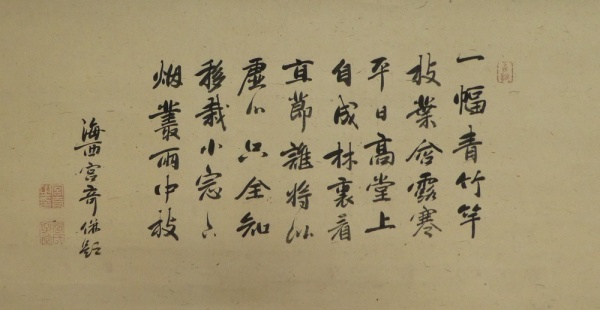 一幅青竹竿
枝葉含露寒
平日高堂上
自成林裏看
直節誰將似
虛心只全知
移栽小窓下
烟叢雨中枝
海西宮奇併題